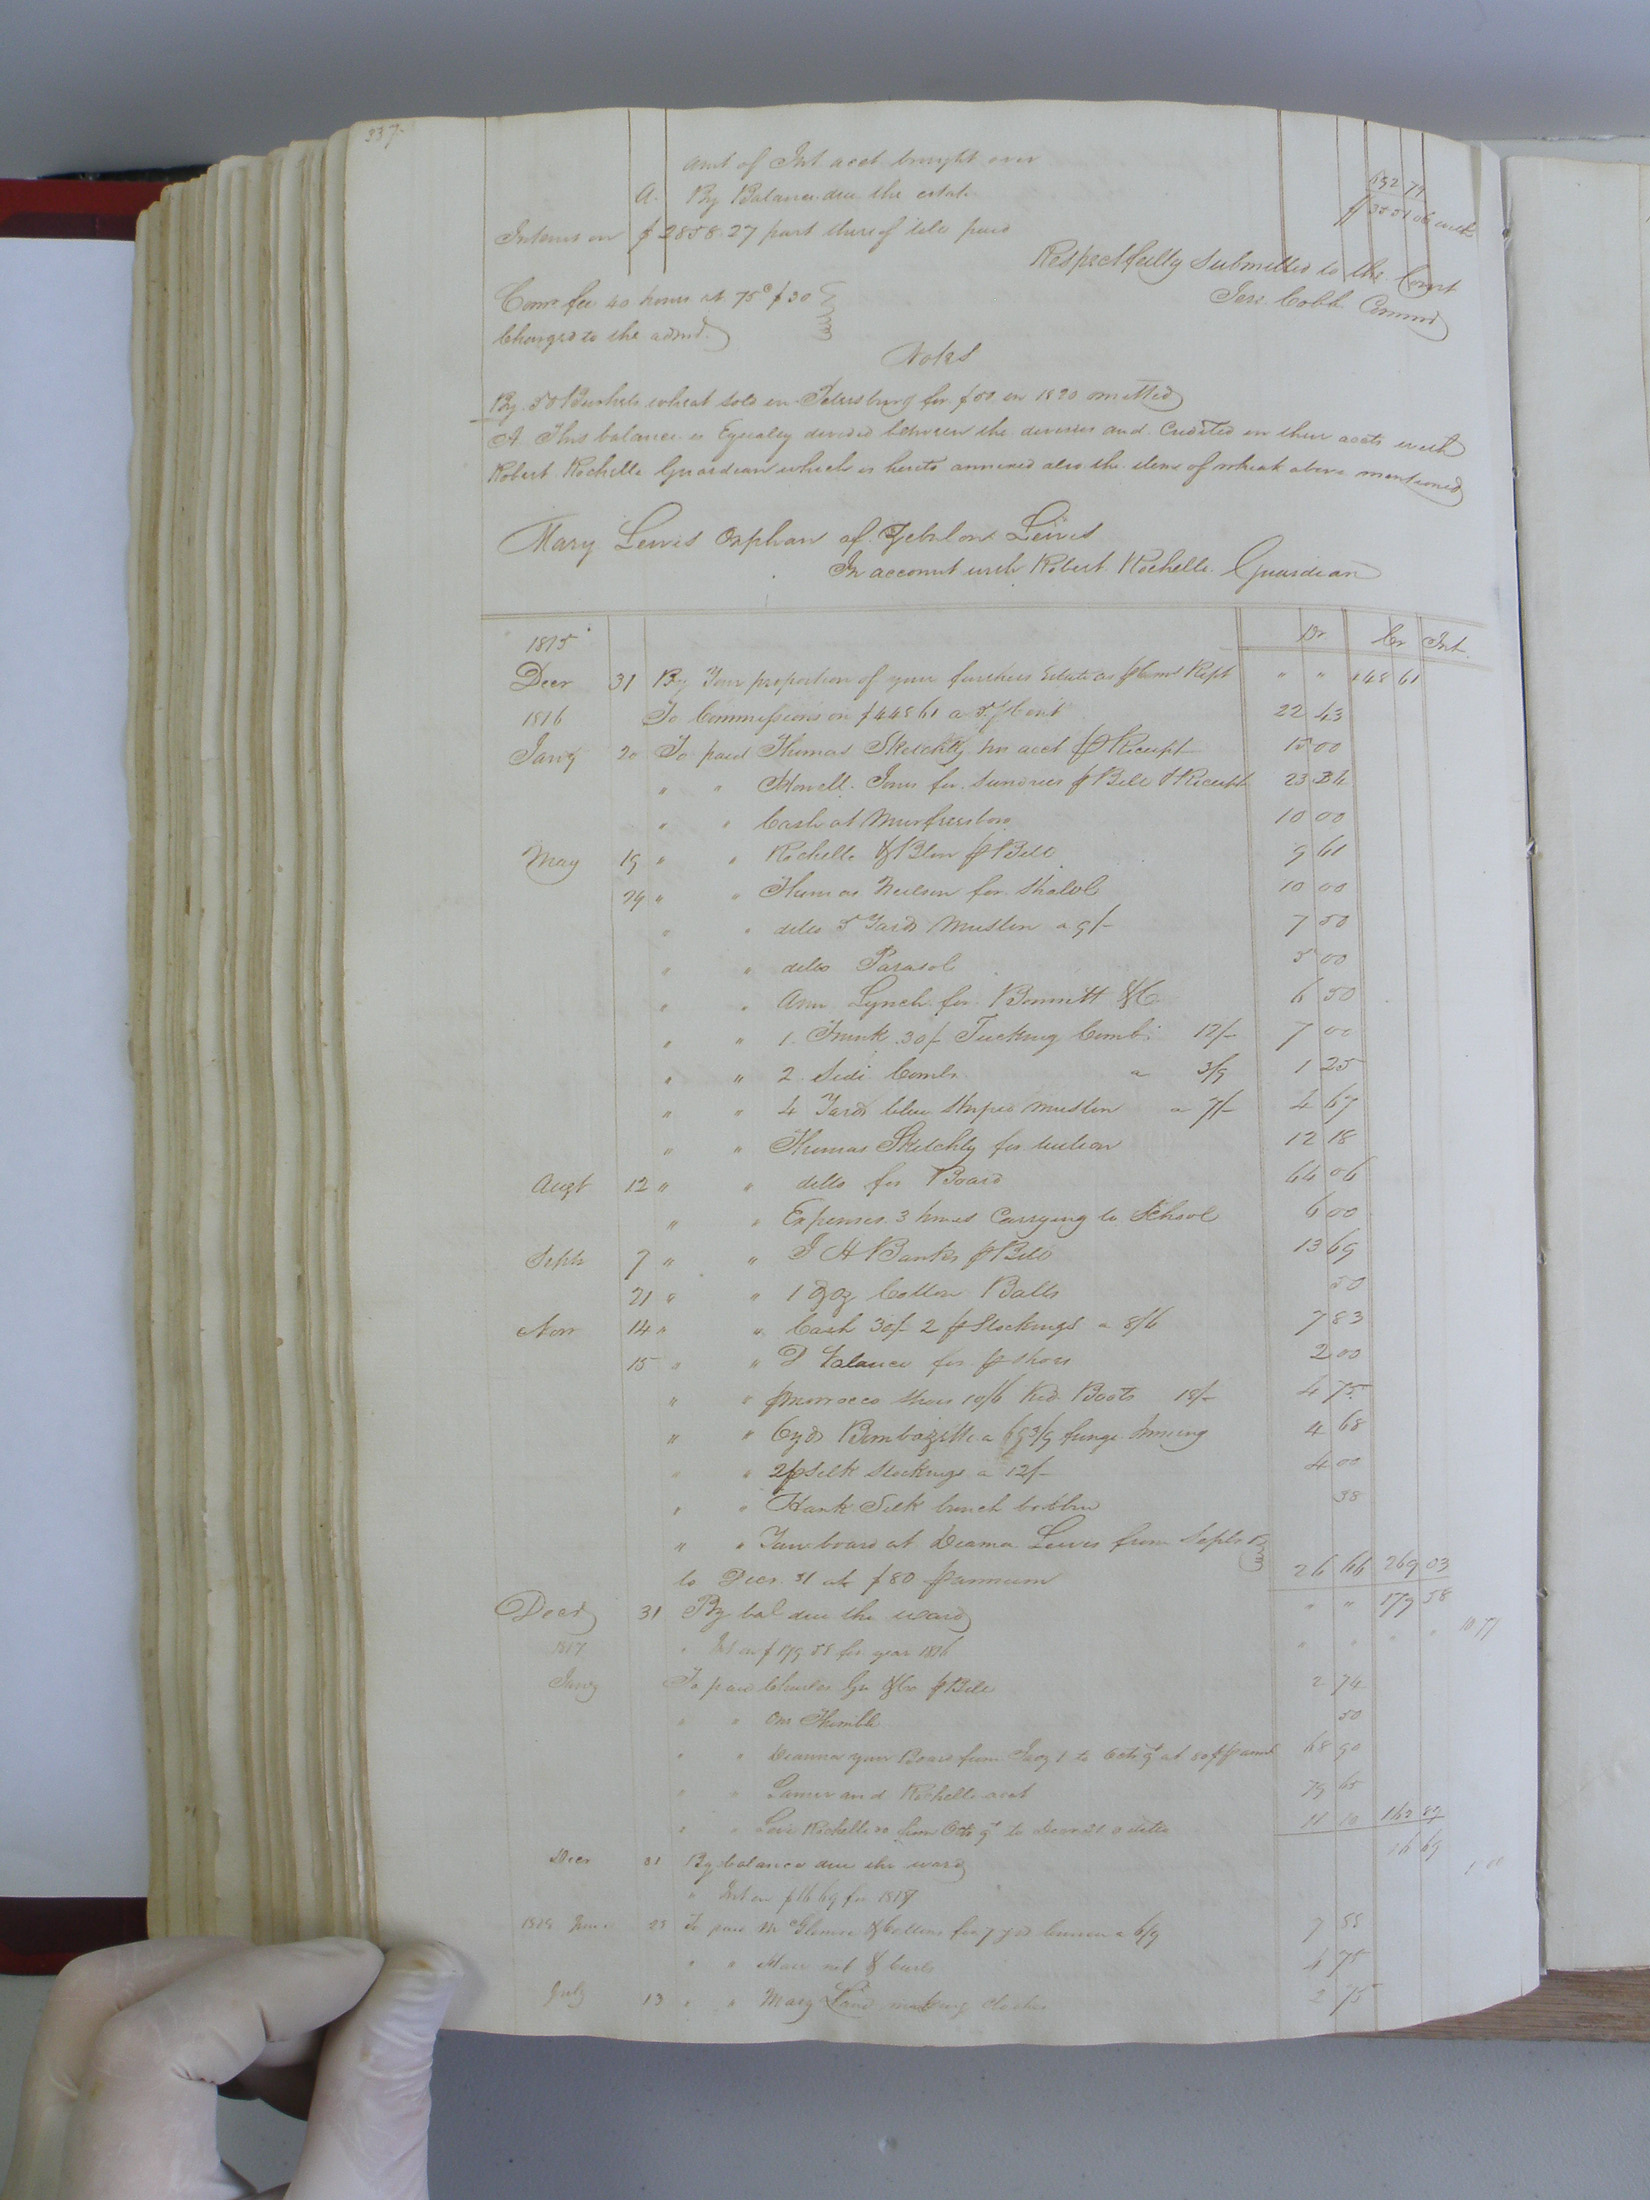 337
amt of Int acct brought over 652 79
A. By Balance due the estate $3551 06 with
Interest on $2858.27 part thereof till paid
Respectfully Submitted to the Court
Cobb Commr
Comr fee 40 hours at 75c $30
Charged to the admr.
Notes
By 50 Bushels wheat sold in Petersburg for $50 in 1820 omitted
A This balance is Equally divided between the devisees and Credited in their accts with
Robert Rochelle Guardian which is hereto annexed also the item of wheat above mentioned
Mary Lewis Orphan of Zebulon Lewis
In account with Robert Rochelle Guardian
1815 Dr Cr Int.
Decr 31 By Your proportion of your fathers Estate as pr Comr Rept " " 448 61
1816 To Commissions on $448 61 a 5 pr Cent 22 43
Jany 20 To paid Thomas Sketchly his acct pr Receipt 15 00
" " Howell Jones for Sundries pr Bill & Receipt 23 24
" " Cash at Murfreesboro 10 00
May 19 " " Rochelle & Blow pr Bill 9 61
24 " " Thomas Neilson for Shawl 10 00
" " ditto 5 Yards Muslin a 9/- 7 50
" " ditto Parasol 5 00
" " Ann Lynch for Bonnitt &C 6 50
" " 1 Trunk 30/- Tucking Comb 12/- 7 00
" " 2 Side Combs a 3/9 1 25
" " 4 Yards blue striped muslin a 7/- 4 67
" " Thomas Sketchly for tuition 12 18
Augt 12 " " ditto for Board 64 06
" " Expenses 3 times Carrying to School 6 00
Septr 7 " " J H Banks pr Bill 13 69
21 " " 1 Doz Cotton Balls 50
Novr 14 " " Cash 30/- 2 pr Stockings a 8/6 7 83
15 " " D Valance for pr shoes 2 00
" " pr Morrocco shoes 10/6 Kid Boots 18/- 4 75
" " 6 yds Bombazette a 3/9 4 68
" " 2 pr Silk Stockings a 12/- 4 00
" " Hank Silk bunch bobbin 38
" " Your board at Dianna Lewis from Septr
to Decr 31 at $80 pr annum 26 66 269 03
Decr 31 By bal due the ward " " 179 58
1817 " Int on $179 58 for year 1816 " " " " 10 77
Jany To paid Charles &Co pr Bill 2 74
" " One Thimble 50
" " Dianna your Board from Jany 1 to Octo 9th at 80$ pr annum 68 90
" " and Rochelle acct 79 65
" " Levi Rochelle do from Octo 9th to Decr 31 a ditto 11 10 162 89
Decr 31 By balance due the ward 16 69
" Int on $16 69 for 1817 1 00
June 23 To paid & Collins for 7 yds a 6/9 7 88
" " net & Curls 4 75
July 13 " " Mary making clothes 2 75